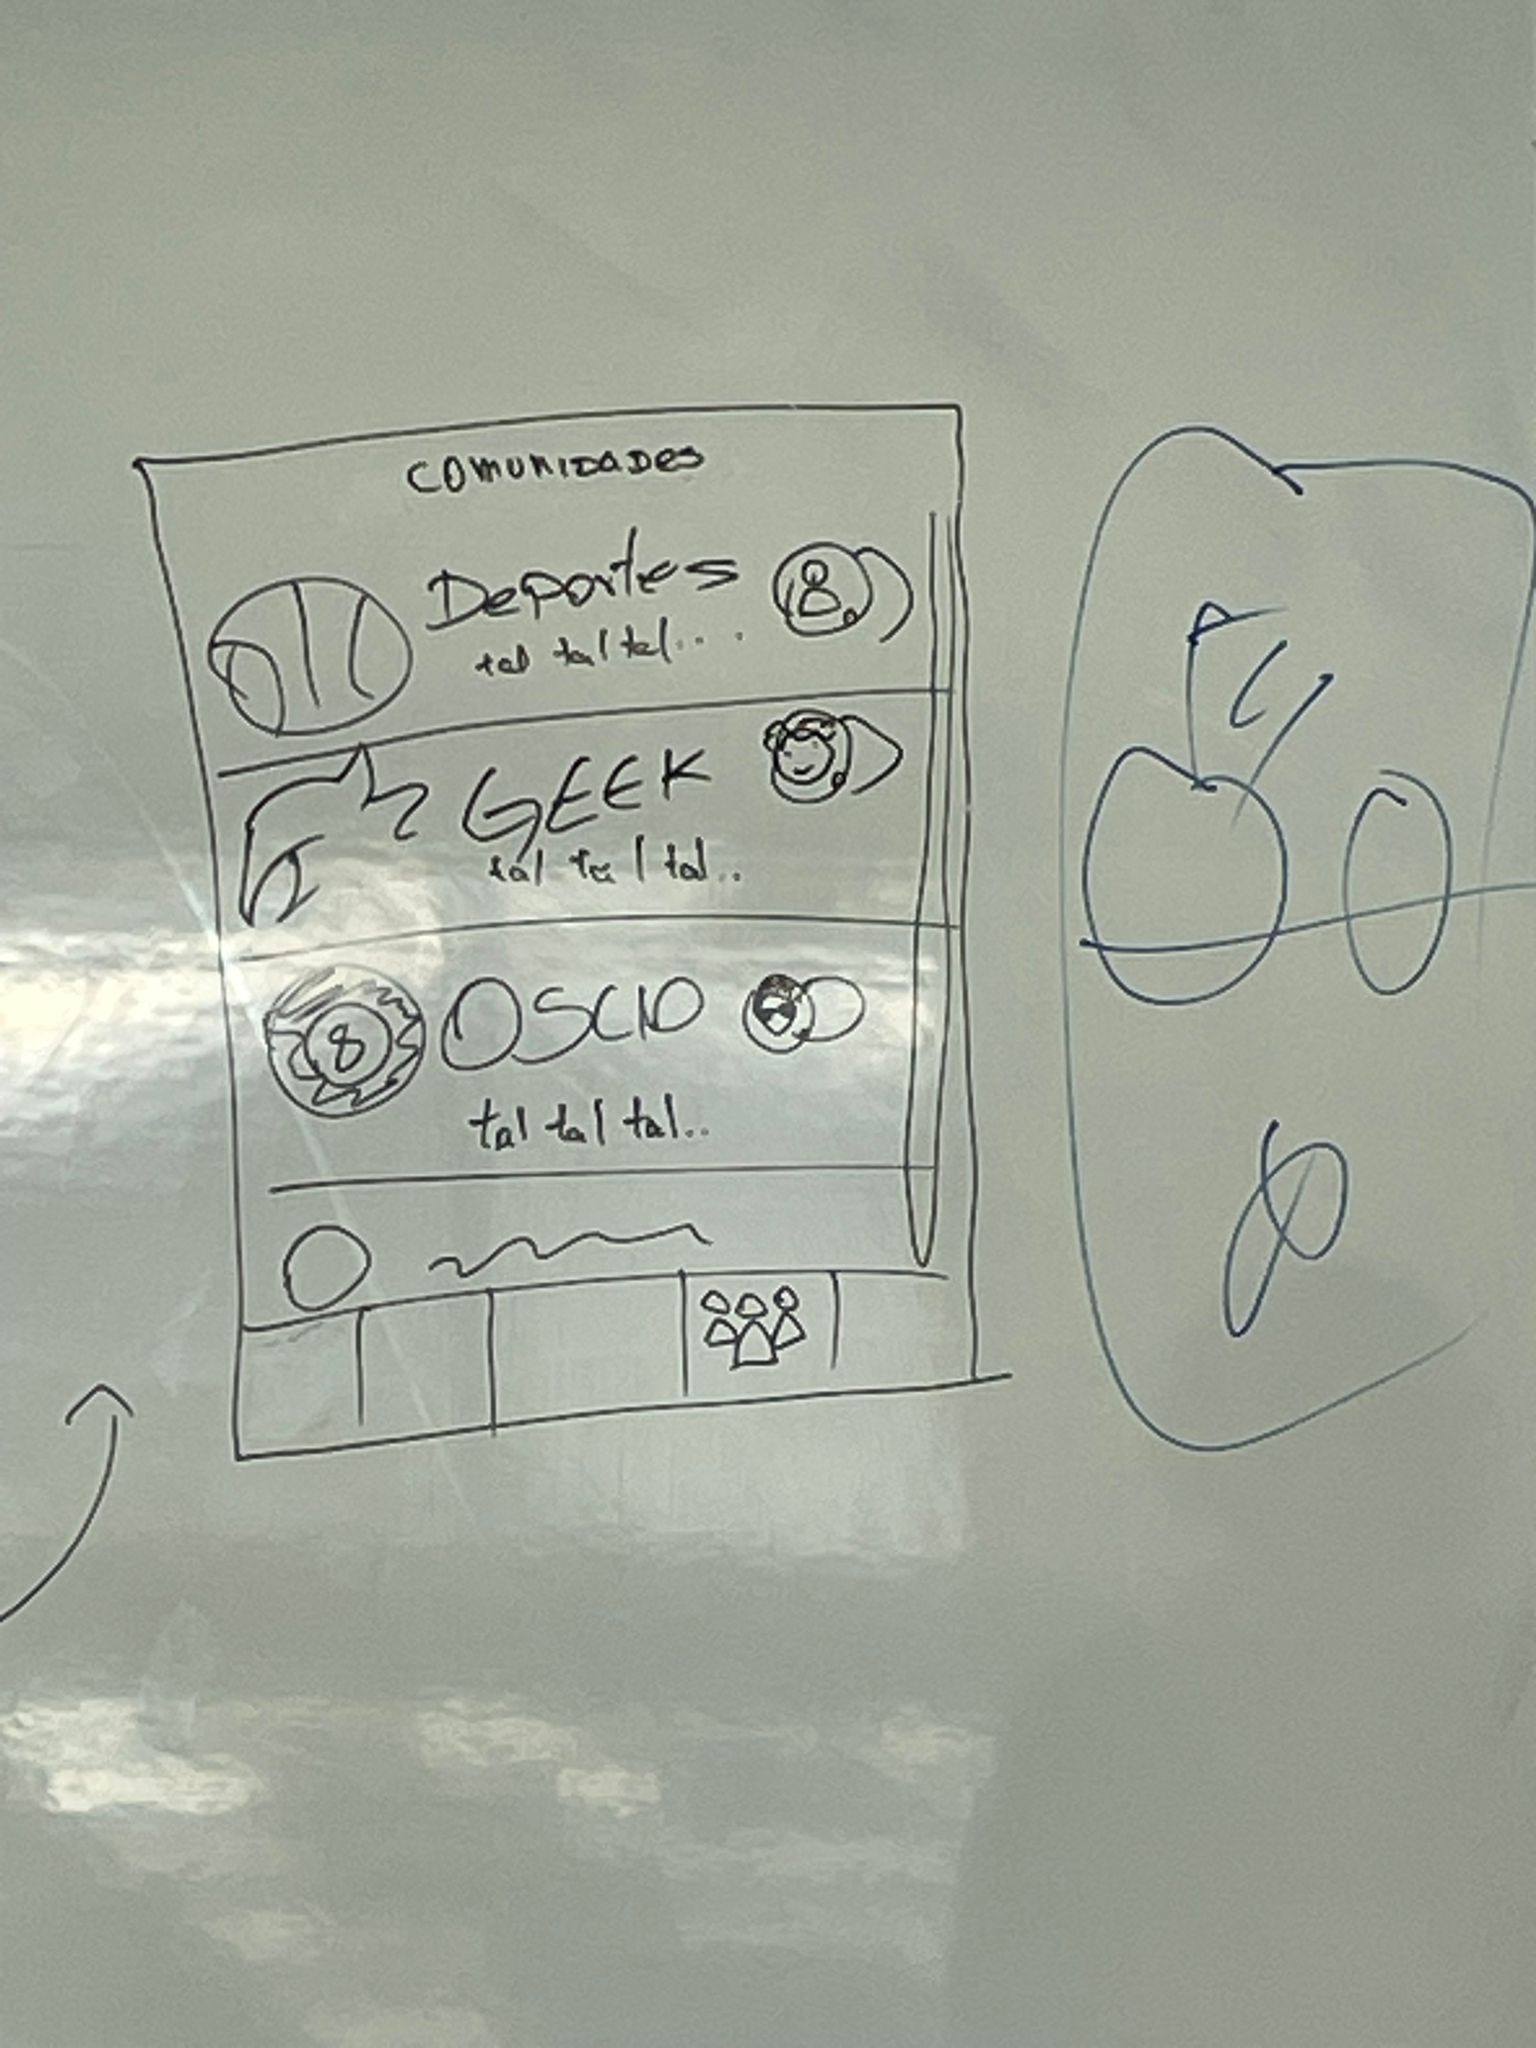 COMUNIDADES
Deportes
tal tal tal....
GEEK
tal tal tal..
8
OSCIO
tal tal tal..